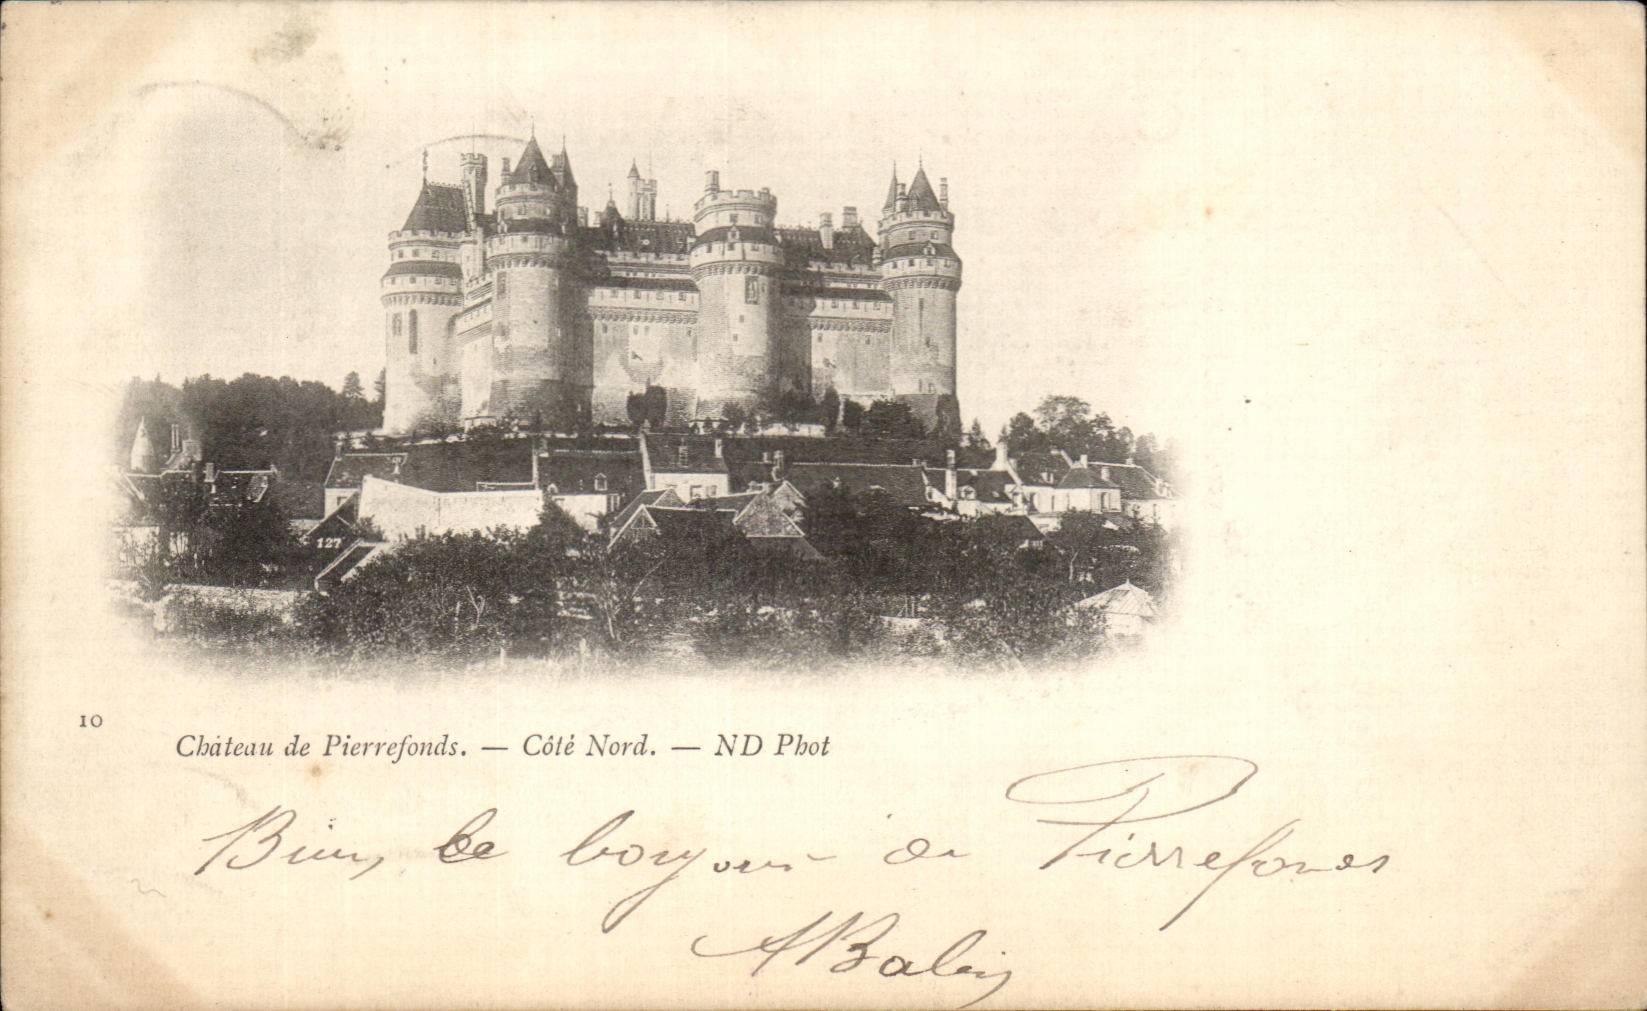 127
10
Château de Pierrefonds. — Côté Nord. — ND Phot
Bien le bonjour de Pierrefonds
ABalin